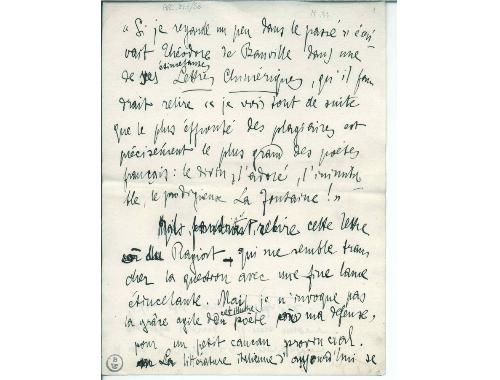 « Si je regarde un peu dans le passé » écri
vait Théodore de Banville dans une
de ses étincelantes Lettres Chimériques, qu'il fau
drait relire « je vois tout de suite
que le plus effronté des plagiaires est
précisément le plus grand des poètes
français : le divin, l'adoré, l'inimita
ble, le prodigieux La Fontaine ! »
relire cette lettre
qui me semble tran
cher la question avec une fine lance
étincelante. Mais je n'invoque pas
la grâce agile du poète ma défense,
pour un petit cancan provincial.
La littérature italienne d'aujourd'hui se